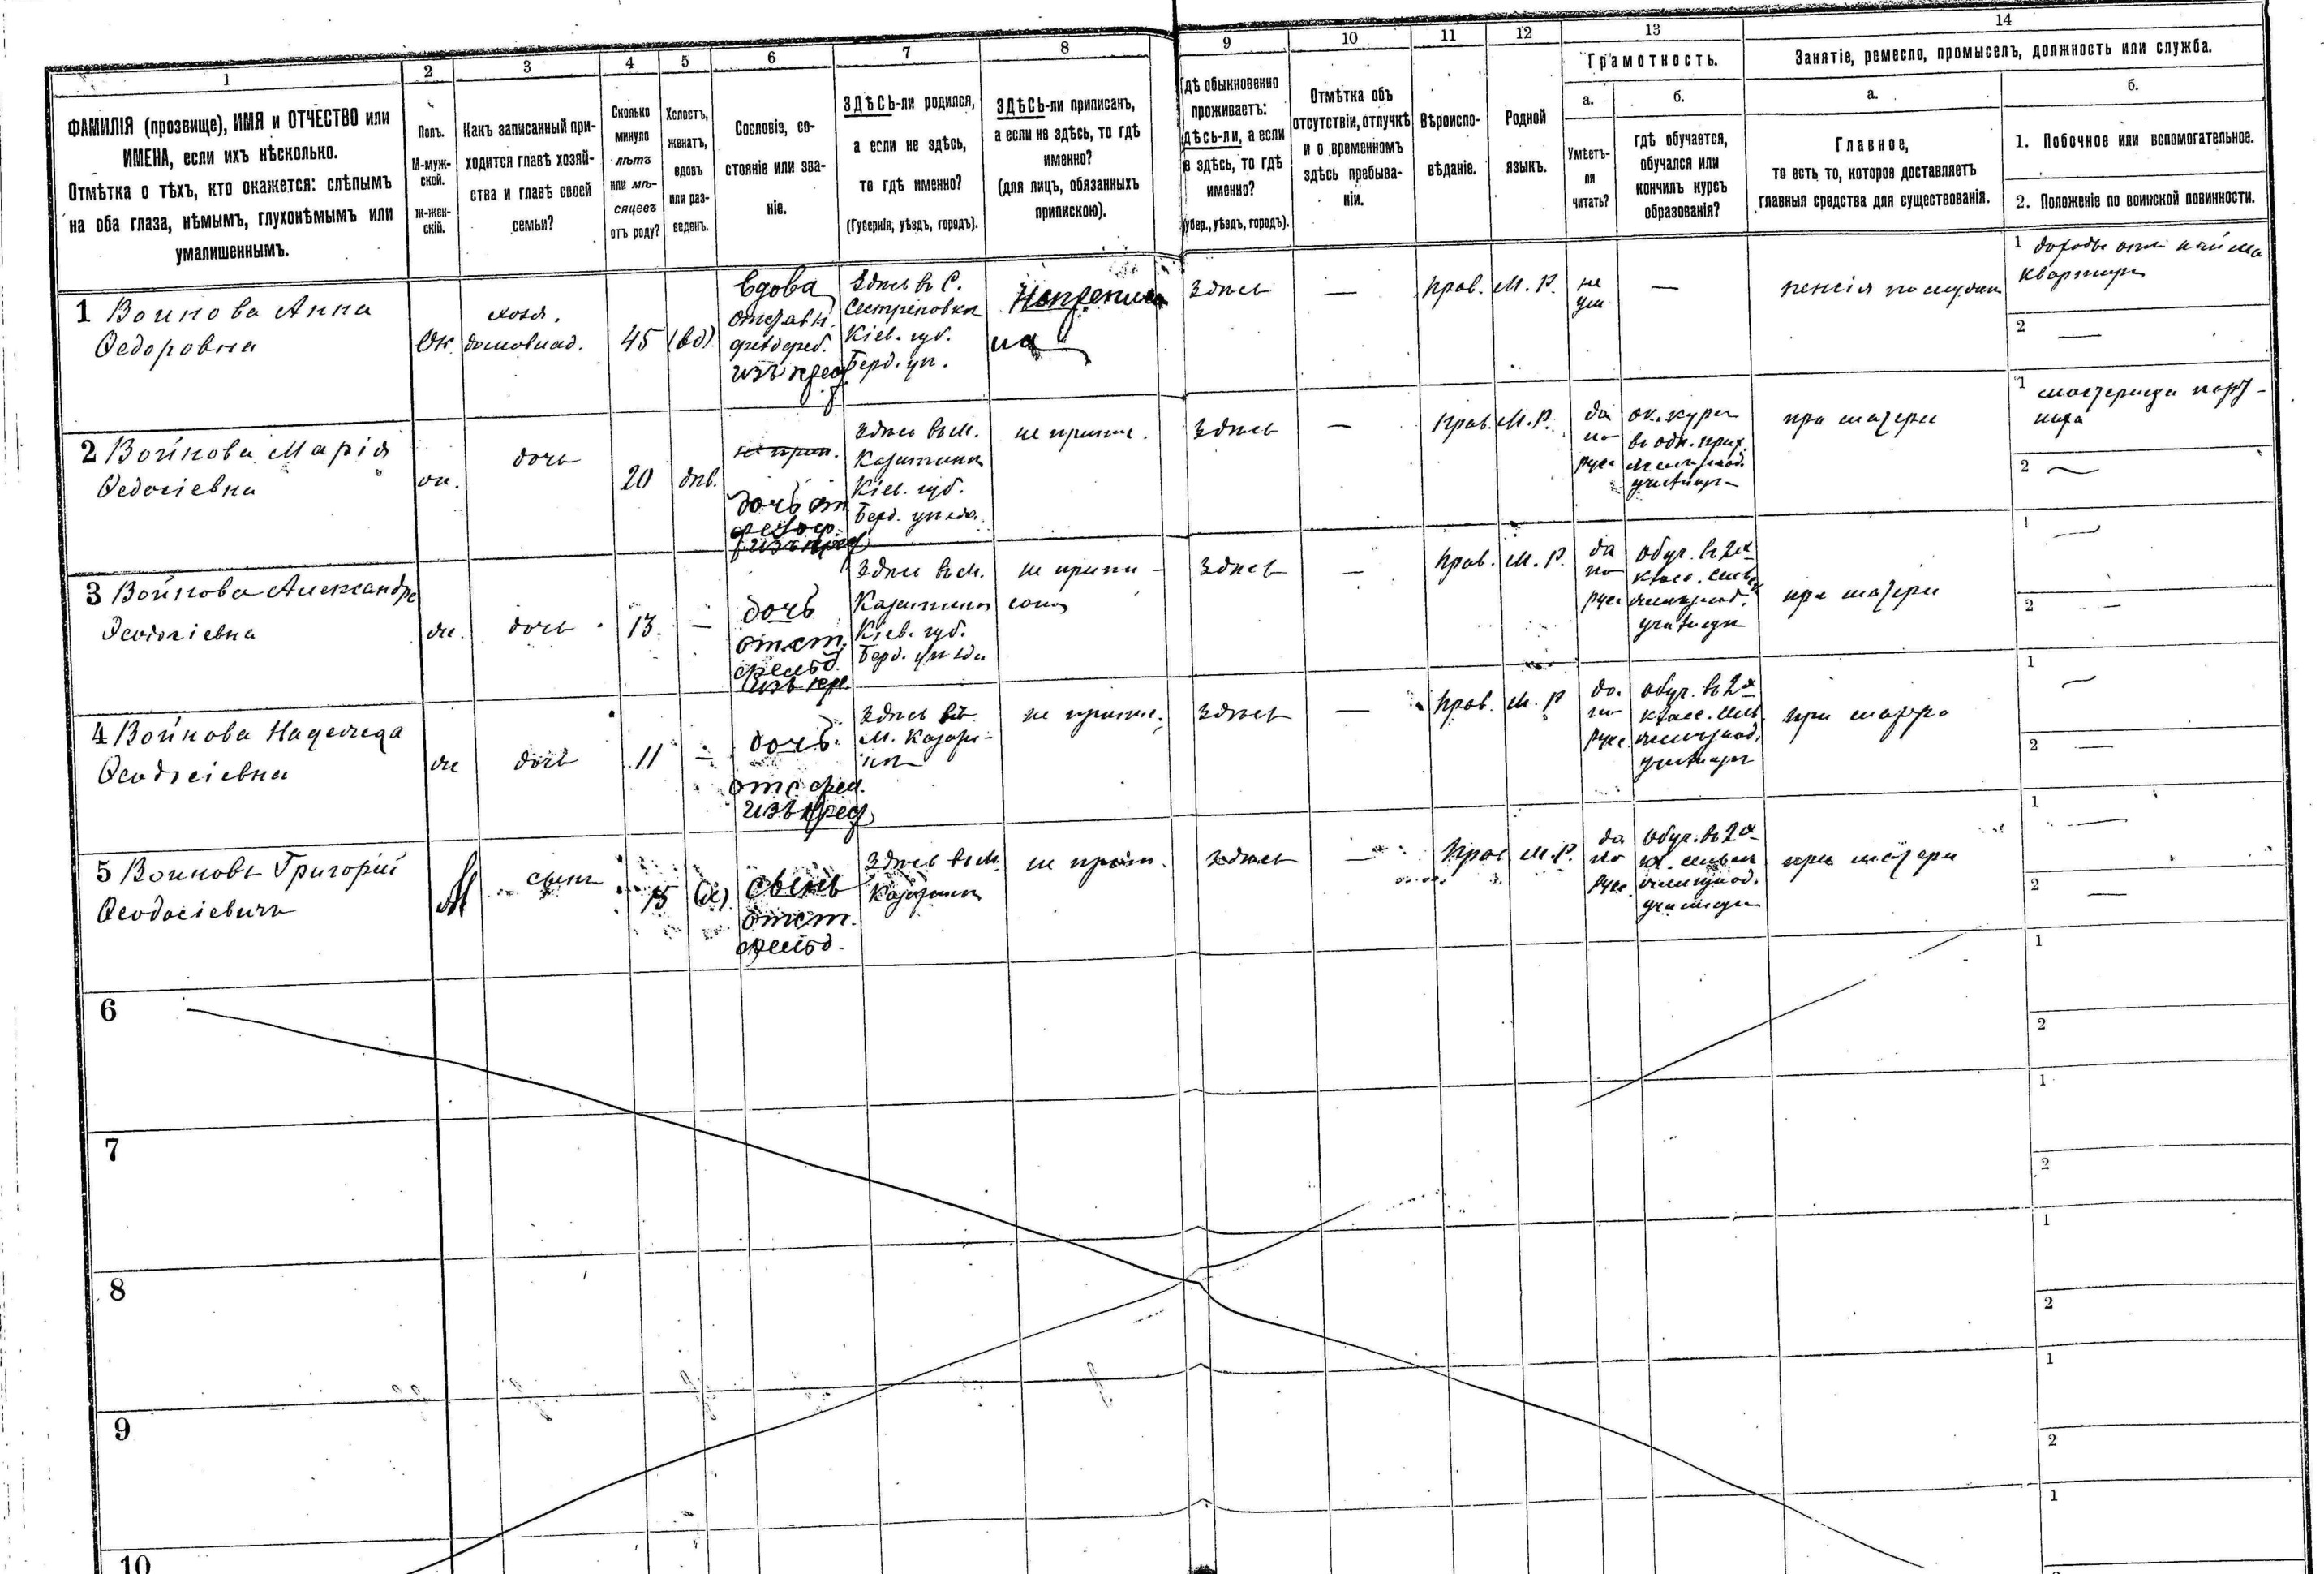 1
2
3
4
5
6
7
8
9
10
11
12
13
14
ФАМИЛІЯ (прозвище), ИМЯ и ОТЧЕСТВО или
ИМЕНА, если ихъ нѣсколько.
Отмѣтка о тѣхъ, кто окажется: слѣпымъ
на оба глаза, нѣмымъ, глухонѣмымъ или
умалишеннымъ.
Полъ.
М-муж-
ской.
Ж-жен-
скій.
Какъ записанный при-
ходится главѣ хозяй-
ства и главѣ своей
семьи?
Сколько
минуло
лѣтъ
или мѣ-
сяцевъ
отъ роду?
Холостъ,
женатъ,
вдовъ
или раз-
веденъ.
Сословіе, со-
стояніе или зва-
ніе.
ЗДѢСЬ-ли родился,
а если не здѣсь,
то гдѣ именно?
(Губернія, уѣздъ, городъ).
ЗДѢСЬ-ли приписанъ,
а если не здѣсь, то гдѣ
именно?
(для лицъ, обязанныхъ
припискою).
Гдѣ обыкновенно
проживаетъ:
здѣсь-ли, а если
не здѣсь, то гдѣ
именно?
(Губер., уѣздъ, городъ).
Отмѣтка объ
отсутствіи, отлучкѣ
и о временномъ
здѣсь пребыва-
ніи.
Вѣроиспо-
вѣданіе.
Родной
языкъ.
Грамотность.
а.
Умѣетъ-
ли
читать?
б.
гдѣ обучается,
обучался или
кончилъ курсъ
образованія?
Занятіе, ремесло, промыселъ, должность или служба.
а.
Главное,
то есть то, которое доставляетъ
главныя средства для существованія.
б.
1. Побочное или вспомогательное.
2. Положеніе по воинской повинности.
1 Воинова Анна
Федоровна
Ж.
хозя.
домовлад.
45
(вд)
Вдова
отставн.
Здѣсь въ С.
Сестреновкѣ
Кіев. губ.
Берд. уѣ.
Здѣсь
—
прав.
М. Р.
не
ум
—
пенсія
1 доходъ отъ найма
квартиръ
2 —
2 Войнова Марія
Федосіевна
ж.
дочь
20
дѣв.
дочь от
Здѣсь въ М.
Казатинѣ
Кіев. губ.
Берд. уѣзда
не припис.
Здѣсь
—
прав.
М. Р.
да
по
русс
ок. курсъ
въ
при матери
1 мастерица
2 —
3 Войнова Александра
Феодосіевна
ж.
дочь
13.
—
дочь
отст.
фельд.
Здѣсь въ М.
Казатинѣ
Кіев. губ.
Берд. уѣзда
не припи-
сана
Здѣсь
—
прав.
М. Р.
да
по
русс
обуч. въ 2х
класс.
при матери
1 —
2 —
4 Войнова Надежда
Феодосіевна
ж
дочь
11
—
дочь.
Здѣсь въ
М. Казати-
нѣ
не припис.
Здѣсь
—
прав.
М. Р
да.
по
русс.
обуч. въ 2х
класс.
1 —
2 —
5 Воиновъ Григорій
Феодосіевичъ
М
сынъ
15
(х)
сынъ
отст.
фельд.
Здѣсь въ М
Казатинѣ
не припи.
Здѣсь
—
прав
М. Р.
да
по
русс
обуч. въ 2х
при матери
1 —
2 —
6
1
2
7
1
2
8
1
2
9
1
2
10
1